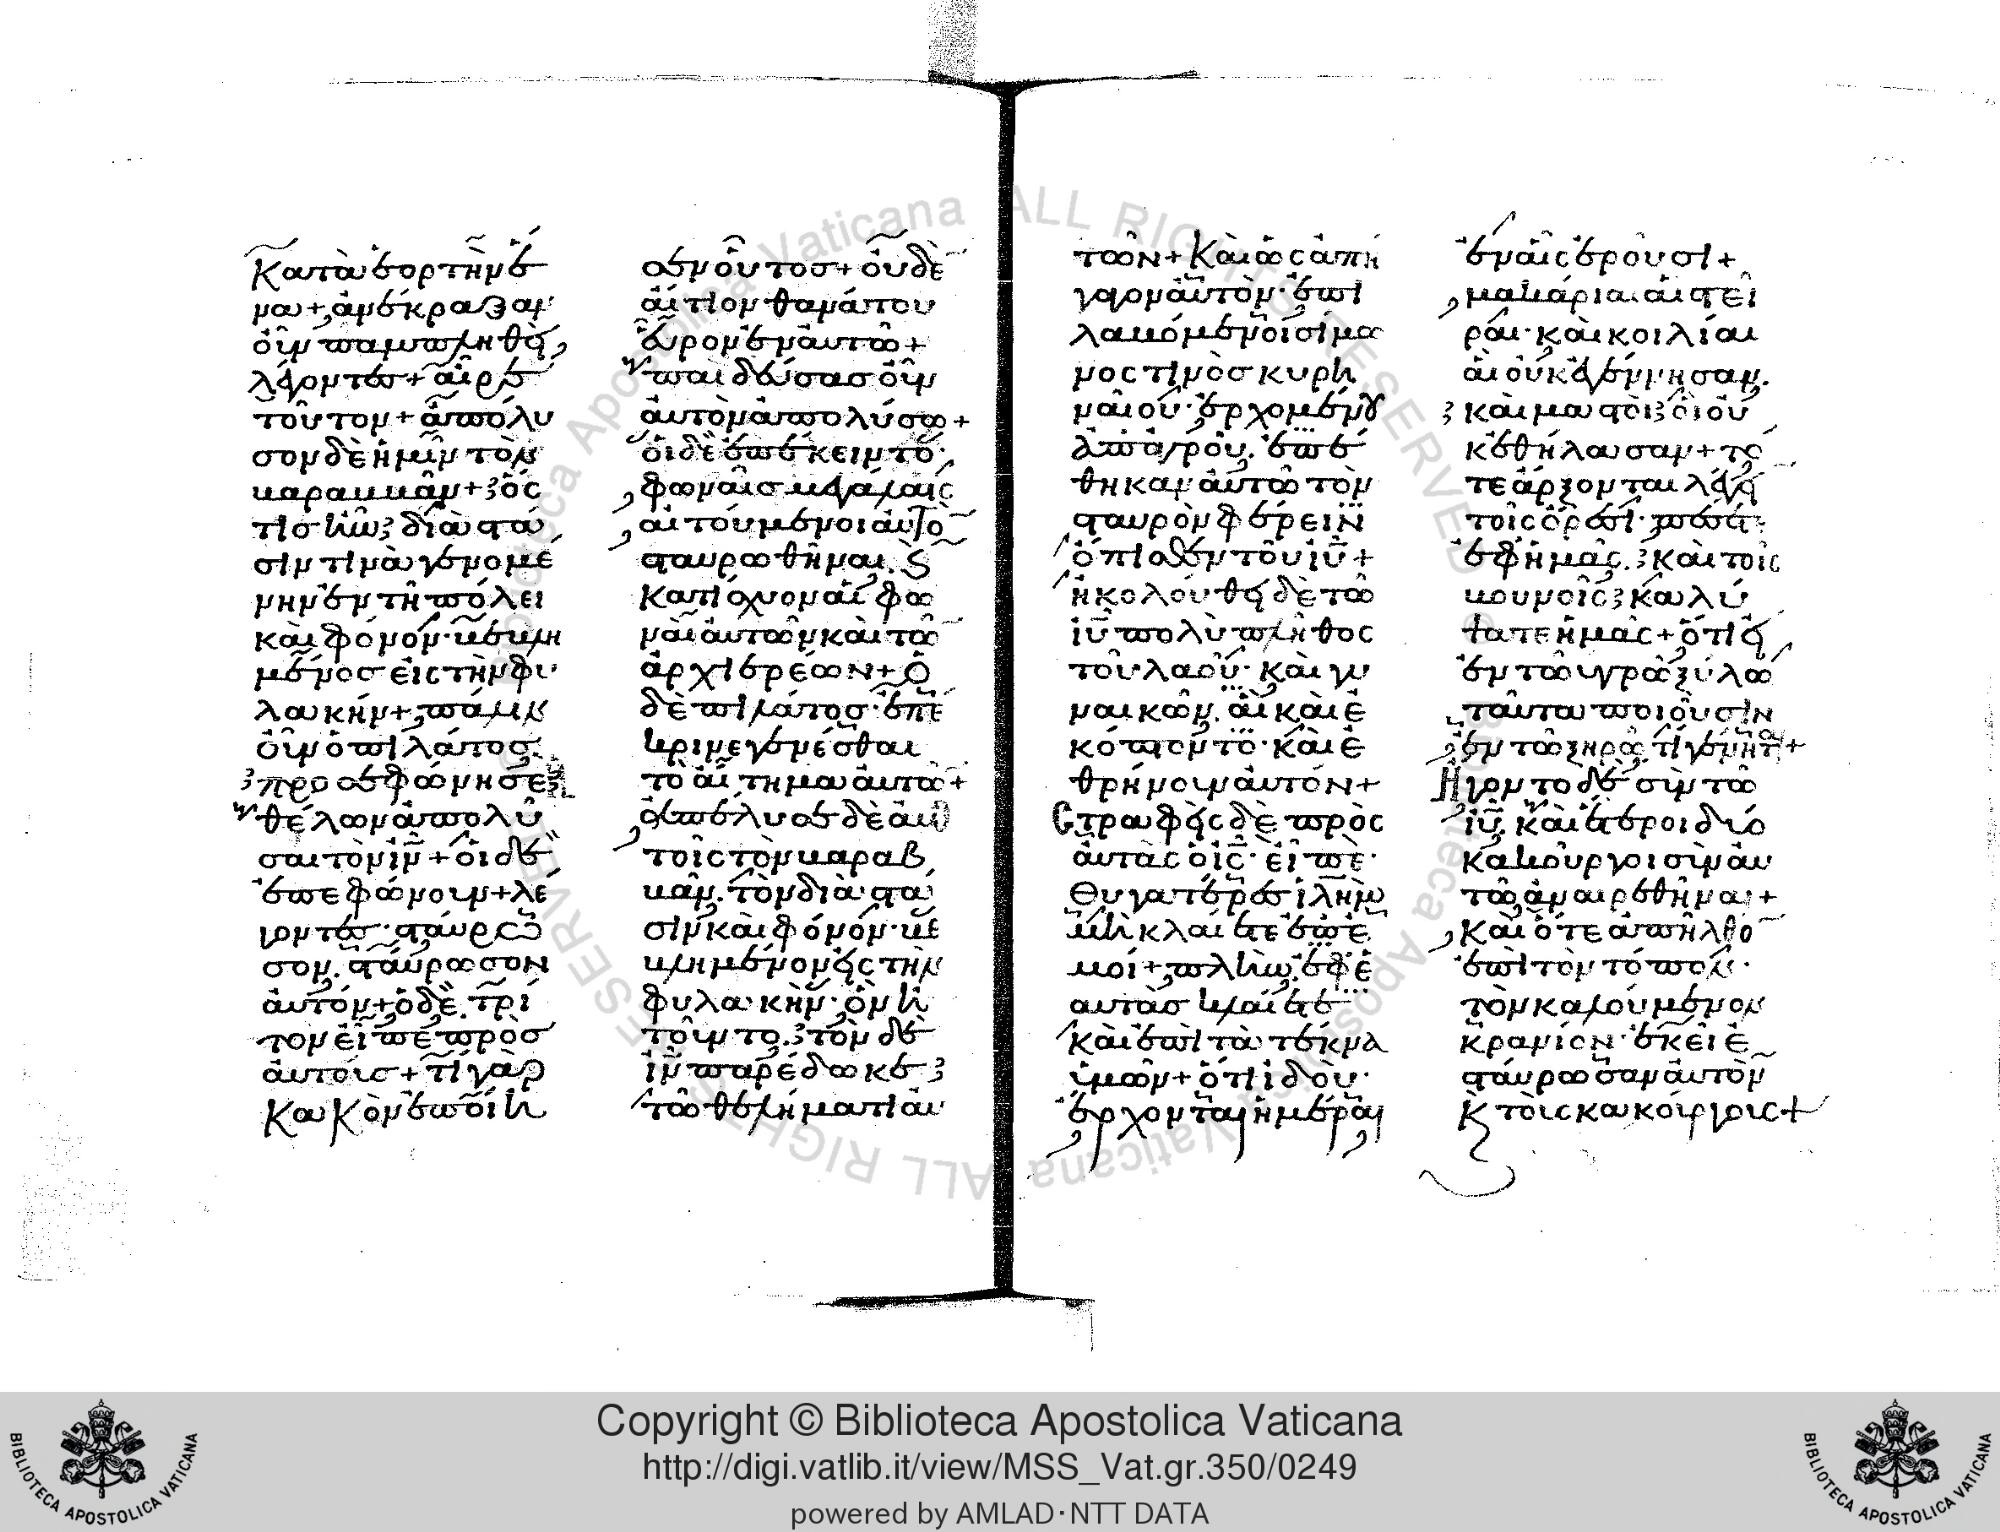 Κατὰ ἑορτὴν ἕ
να + ἀνέκραξαν
οὖν παμπληθεὶ
λέγοντες + αἶρε
τοῦτον + ἀπόλυ
σον δὲ ἡμῖν τὸν
βαραββᾶν + ὅς
τις ἦν διὰ στά
σιν τινὰ γενομέ
νην ἐν τῆ πόλει
καὶ φόνον · βεβλη
μένος εἰς τὴν φυ
λακήν + πάλιν
οὖν ὁ πιλάτος
προσεφώνησε
θέλων ἀπολῦ
σαι τὸν ἰν + οἱ δὲ
ἐπεφώνουν + λέ
γοντες · σταύρω
σον . σταύρωσον
αὐτόν + ὁ δὲ τρί
τον εἶπε πρὸς
αὐτοὺς + τί γὰρ
κακὸν ἐποίη
σεν οὗτος + οὐδὲ
αἴτιον θανάτου
εὗρον ἐν αὐτῶ +
παιδεύσας οὖν
αὐτὸν ἀπολύσω +
οἱ δὲ ἐπέκειντο
φωναῖς μεγάλαις
αἰτούμενοι αὐτὸ
σταυρωθῆναι . καὶ
κατίσχυον αἱ φω
ναὶ αὐτῶν καὶ τῶ
ἀρχιερέων + ὁ
δὲ πιλάτος · ἐπέ
κρινε γενέσθαι
τὸ αἴτημα αὐτῶ +
ἀπέλυσε δὲ αὐ
τοῖς τὸν βαραβ
βᾶν . τὸν διὰ στά
σιν καὶ φόνον · βε
βλημένον εἰς τὴν
φυλακὴν · ὃν ἠ
τοῦντο . τὸν δὲ
ἰν παρέδωκε
τῶ θελήματι αὐ
τῶν + Καὶ ὡς ἀπή
γαγον αὐτὸν · ἐπι
λαβόμενοι σίμω
νος τινὸς κυρη
ναίου · ἐρχομένου
ἀπ ἀγροῦ . ἐπέ
θηκαν αὐτῶ τὸν
σταυρὸν φέρειν
ὄπισθεν τοῦ ιῦ +
ἠκολούθει δὲ τῶ
ιῦ πολὺ πλῆθος
τοῦ λαοῦ · καὶ γυ
ναικῶν . αἳ καὶ ἐ
κόπτοντο · καὶ ἐ
θρήνουν αὐτόν +
Στραφεὶς δὲ πρὸς
αὐτὰς ὁ ις · εἶπε ·
Θυγατέρες ιλημ
μὴ κλαίετε ἐπ ἐ
μοί + πλὴν ἐφ ἑ
αυτὰς κλαίετε
καὶ ἐπὶ τὰ τέκνα
ὑμῶν + ὅτι ἰδοὺ ·
ἔρχονται ἡμέραι
ἐν αἷς ἐροῦσι +
μακάριαι αἱ στεῖ
ραι · καὶ κοιλίαι
αἳ οὐκ ἐγέννησαν .
καὶ μαστοὶ οἳ οὐ
κ ἐθήλασαν + τό
τε ἄρξονται λέγει
τοῖς ὄρεσι · πέσετε
ἐφ ἡμᾶς . καὶ τοῖς
βουνοῖς καλύ
ψατε ἡμᾶς + ὅτι εἰ
ἐν τῶ ὑγρῶ ξύλω
ταῦτα ποιοῦσιν
ἐν τῶ ξηρῶ τί γένηται +
Ἤγοντο δὲ σὺν τῶ
ιῦ . καὶ ἕτεροι δύο
κακοῦργοι σὺν αὐ
τῶ ἀναιρεθῆναι +
Καὶ ὅτε ἀπῆλθο
ἐπὶ τὸν τόπον ·
τὸν καλούμενον
κρανίον · ἐκεῖ ἐ
σταύρωσαν αὐτὸν
κ τοὺς κακούργους +
Copyright © Biblioteca Apostolica Vaticana
http://digi.vatlib.it/view/MSS_Vat.gr.350/0249
powered by AMLAD·NTT DATA
BIBLIOTECA APOSTOLICA VATICANA
BIBLIOTECA APOSTOLICA VATICANA